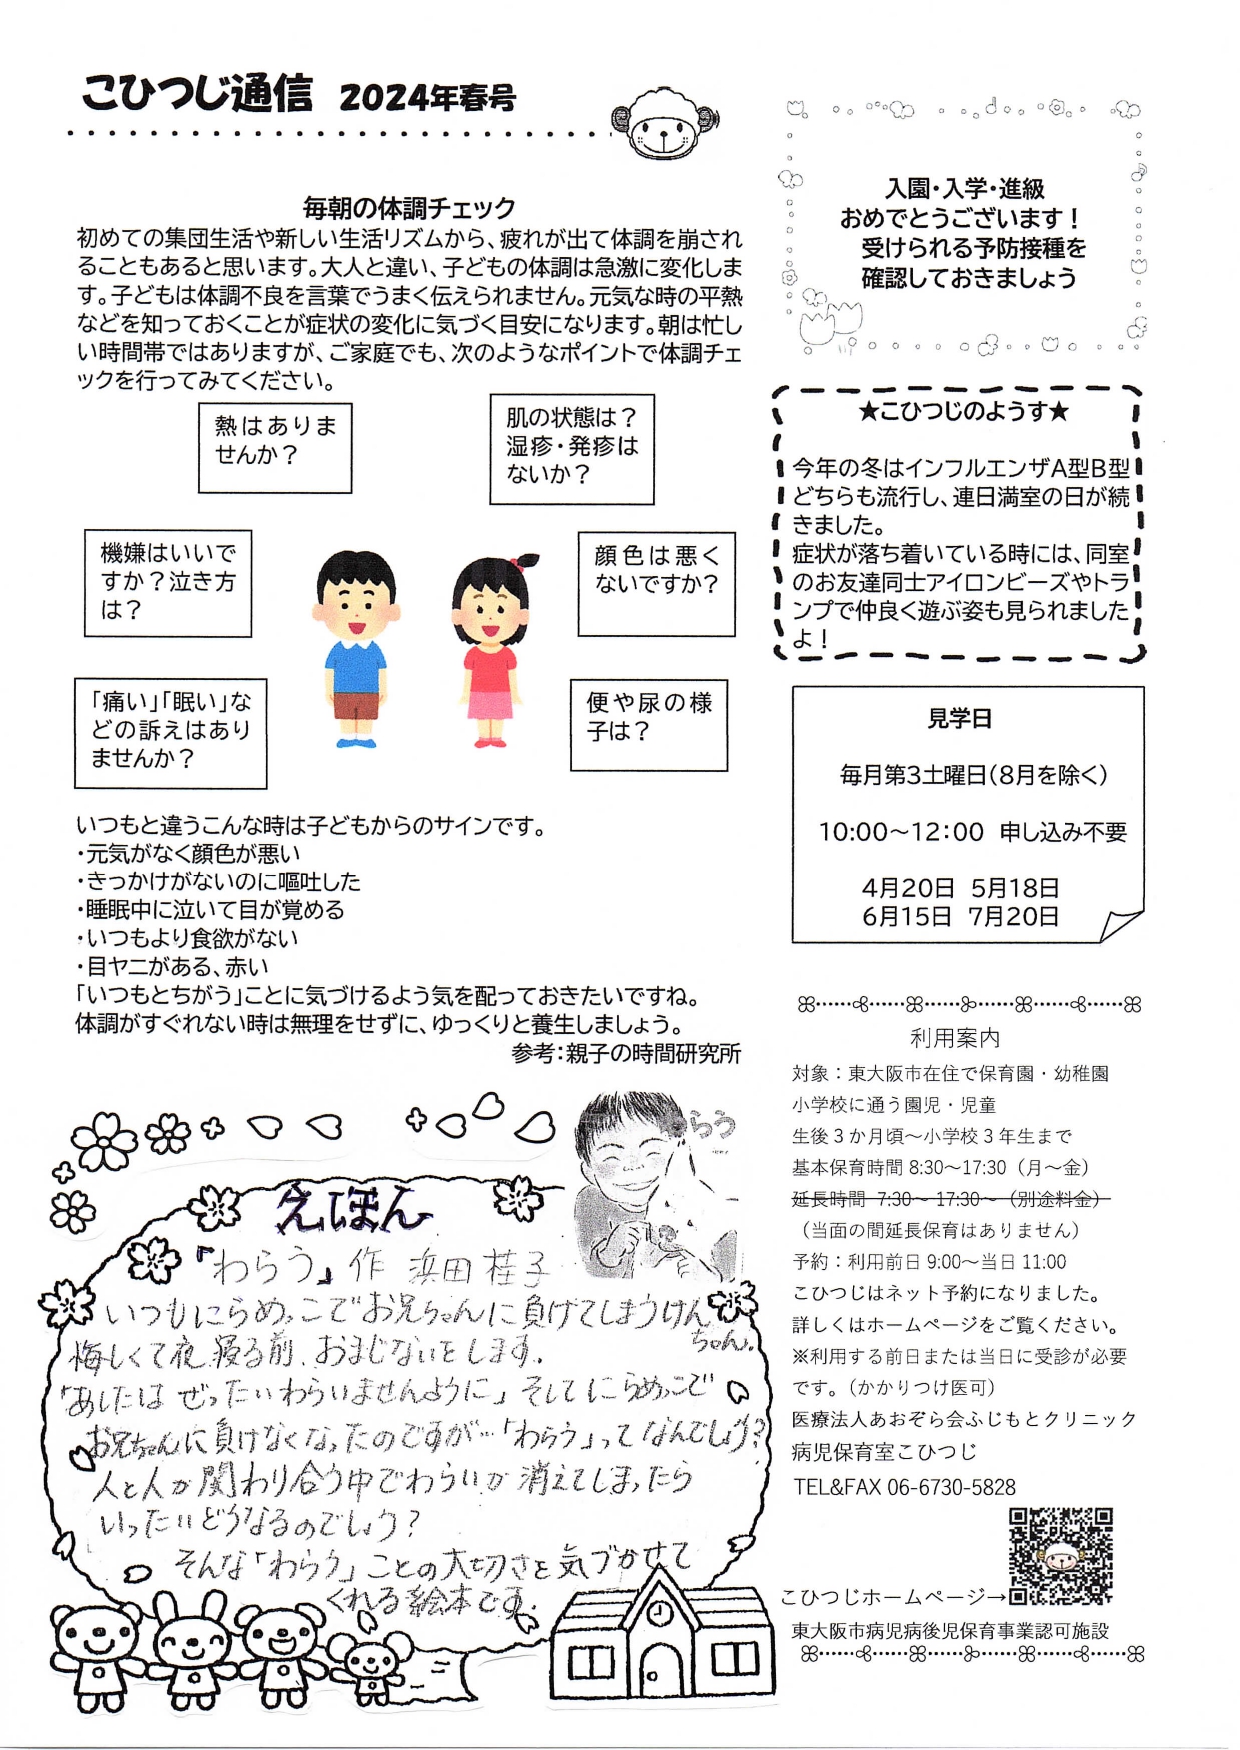 こひつじ通信 2024年春号
毎朝の体調チェック
初めての集団生活や新しい生活リズムから、疲れが出て体調を崩され
ることもあると思います。大人と違い、子どもの体調は急激に変化しま
す。子どもは体調不良を言葉でうまく伝えられません。元気な時の平熱
などを知っておくことが症状の変化に気づく目安になります。朝は忙し
い時間帯ではありますが、ご家庭でも、次のようなポイントで体調チェ
ックを行ってみてください。
熱はありま
せんか？
肌の状態は？
湿疹・発疹は
ないか？
機嫌はいいで
すか？泣き方
は？
顔色は悪く
ないですか？
「痛い」「眠い」な
どの訴えはあり
ませんか？
便や尿の様
子は？
いつもと違うこんな時は子どもからのサインです。
・元気がなく顔色が悪い
・きっかけがないのに嘔吐した
・睡眠中に泣いて目が覚める
・いつもより食欲がない
・目ヤニがある、赤い
「いつもとちがう」ことに気づけるよう気を配っておきたいですね。
体調がすぐれない時は無理をせずに、ゆっくりと養生しましょう。
参考：親子の時間研究所
えほん
『わらう』 作 浜田桂子
いつもにらめっこでお兄ちゃんに負けてしまうけん
ちゃん。
悔しくて夜、寝る前、おまじないをします。
「あしたは ぜったいわらいませんように」 そしてにらめっこで
お兄ちゃんに負けなくなったのですが…「わらう」ってなんでしょう?
人と人が関わり合う中でわらいが消えてしまったら
いったいどうなるのでしょう?
そんな「わらう」ことの大切さを気づかせて
くれる絵本です。
入園・入学・進級
おめでとうございます！
受けられる予防接種を
確認しておきましょう
★こひつじのようす★
今年の冬はインフルエンザA型B型
どちらも流行し、連日満室の日が続
きました。
症状が落ち着いている時には、同室
のお友達同士アイロンビーズやトラ
ンプで仲良く遊ぶ姿も見られました
よ！
見学日
毎月第3土曜日（8月を除く）
10:00～12：00 申し込み不要
4月20日 5月18日
6月15日 7月20日
利用案内
対象：東大阪市在住で保育園・幼稚園
小学校に通う園児・児童
生後３か月頃～小学校３年生まで
基本保育時間 8:30～17:30（月～金）
延長時間 7:30～ 17:30～（別途料金）
（当面の間延長保育はありません）
予約：利用前日 9:00～当日 11:00
こひつじはネット予約になりました。
詳しくはホームページをご覧ください。
※利用する前日または当日に受診が必要
です。（かかりつけ医可）
医療法人あおぞら会ふじもとクリニック
病児保育室こひつじ
TEL&FAX 06-6730-5828
こひつじホームページ→
東大阪市病児病後児保育事業認可施設